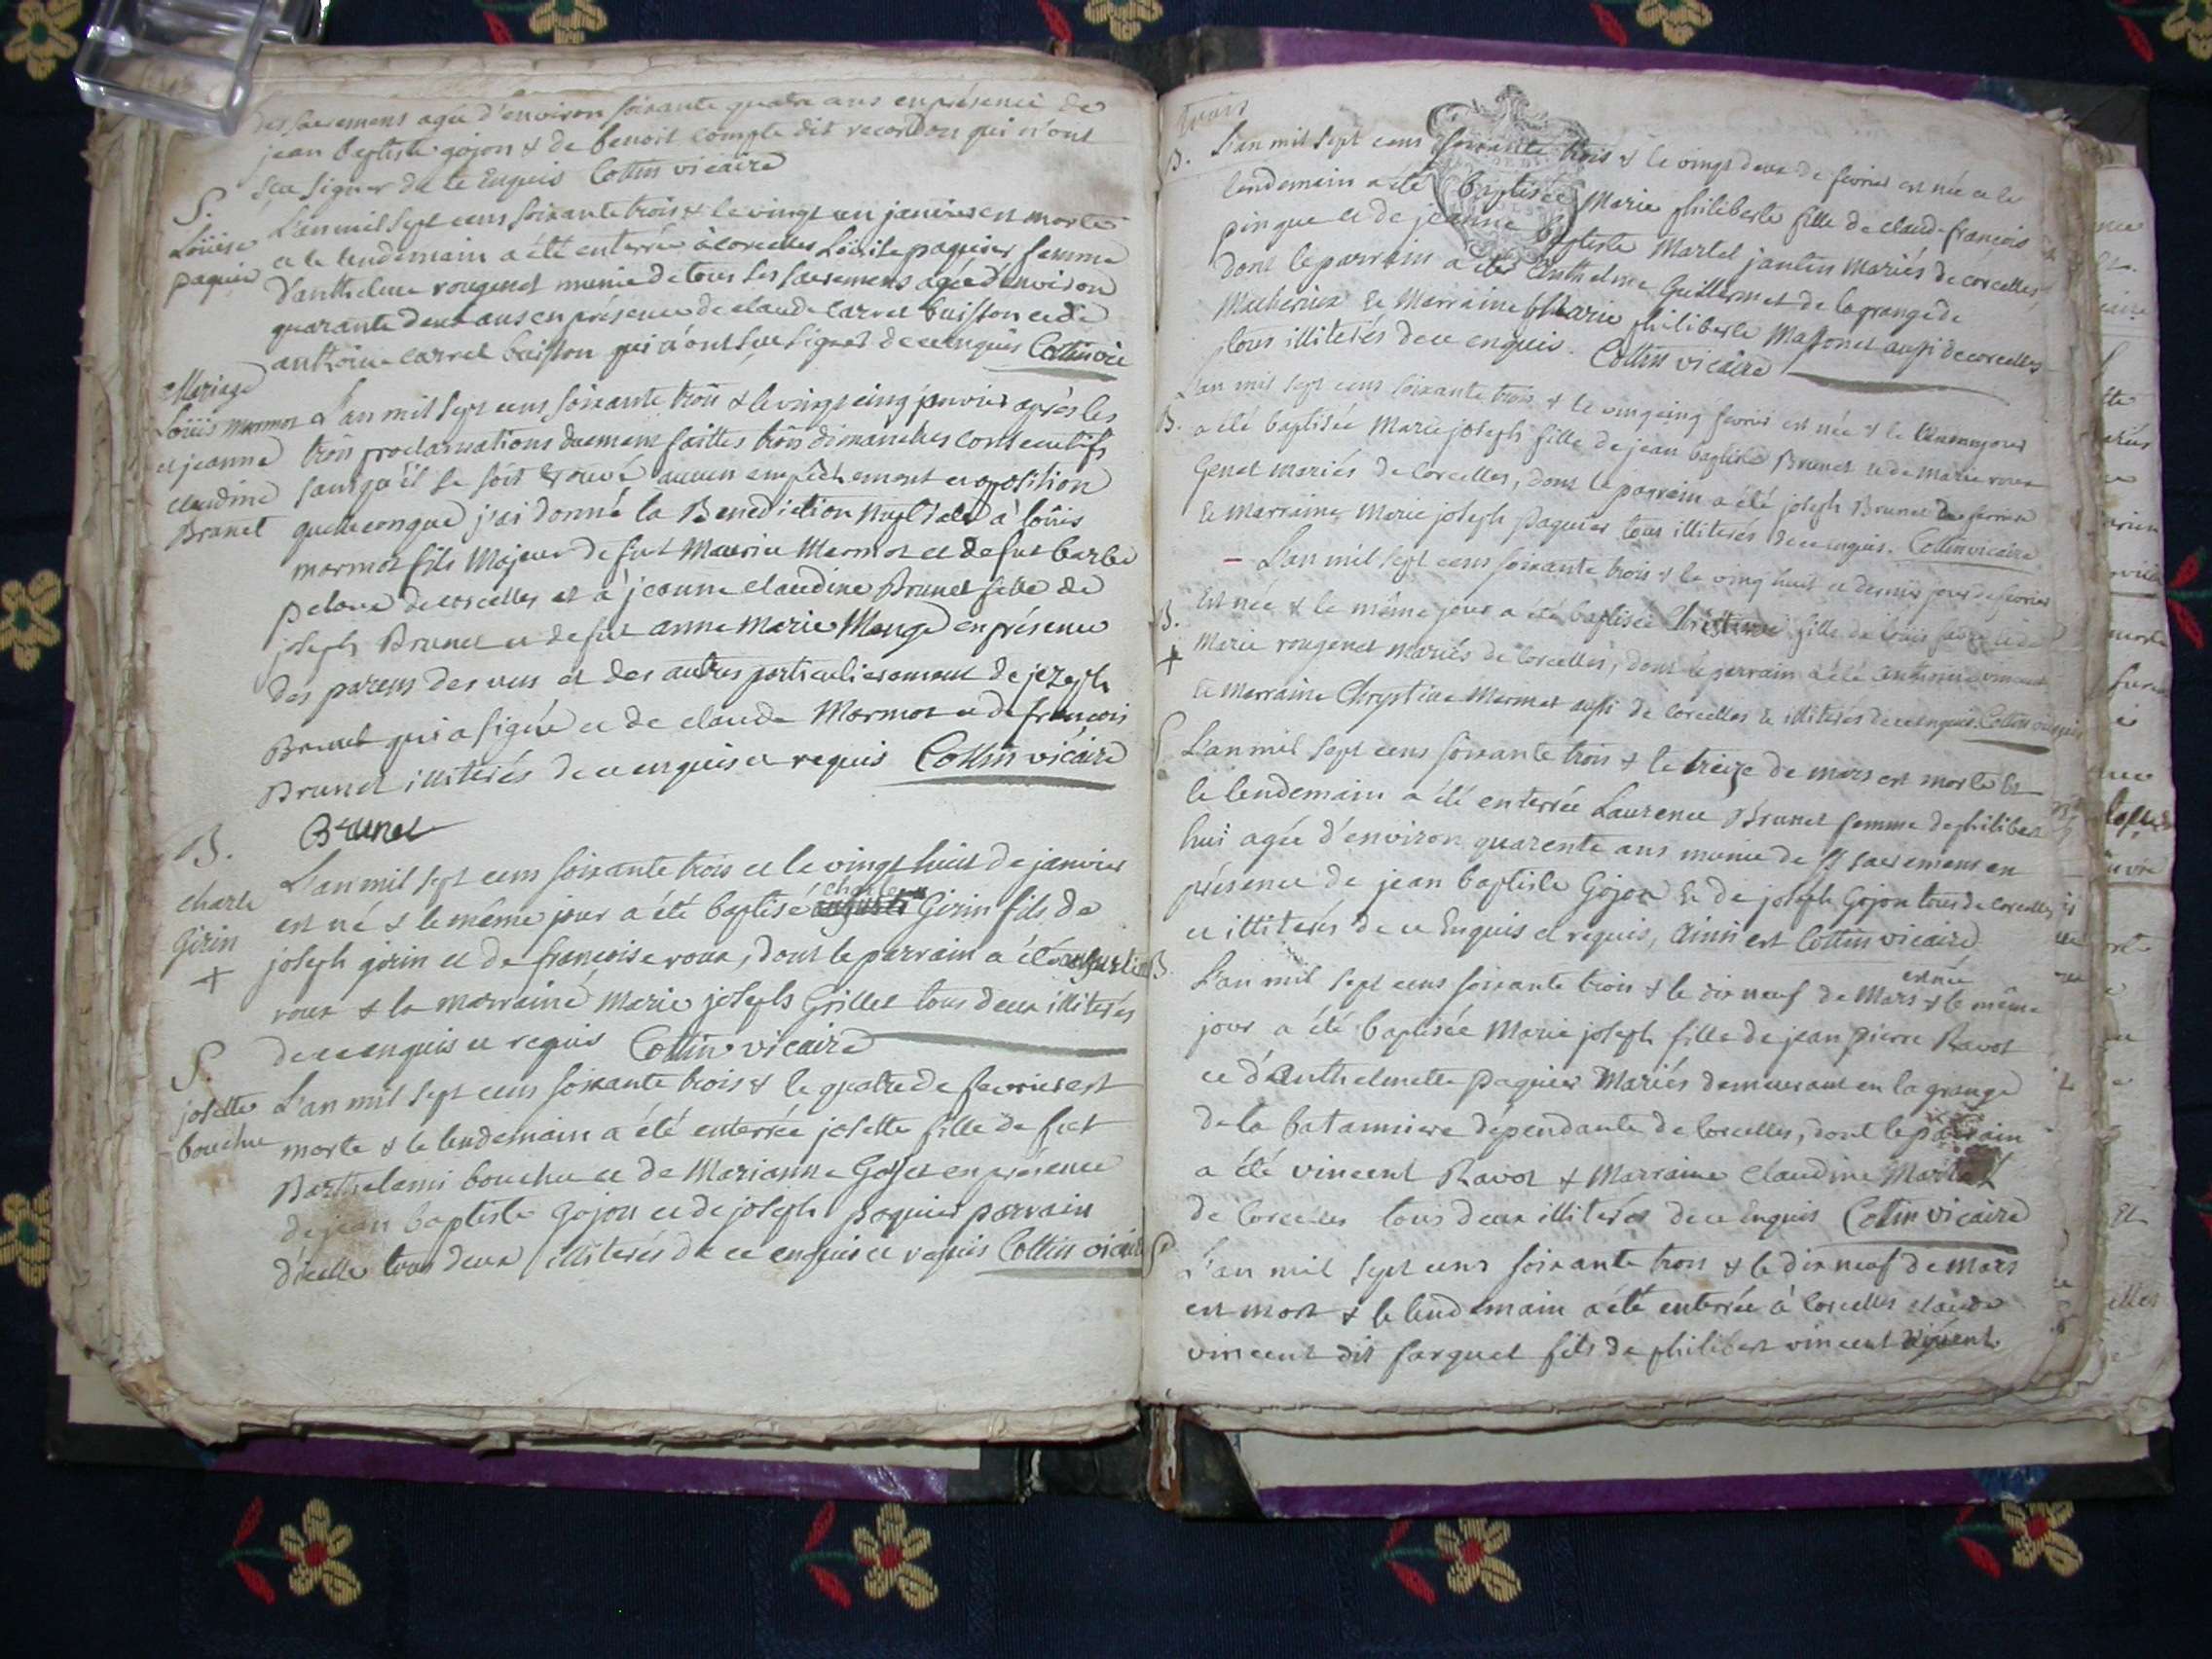 des sacremens agée d'environ soixante quatre ans en présence de
jean baptiste gojon & de benoit compte dit recordon qui n'ont
sçu signer de ce Enquis Cottin vicaire
S.
Loüise
paquier
L'an mil sept cens soixante trois & le vingt un janvier est morte
et le lendemain a été enterrée à Corcelles Loüise paquier femme
d'anthelme rougemet munie de tous les sacremens agée d'environ
quarante deux ans en présence de claude Carrel buisson et de
anthoine carrel buisson qui n'ont sçu signer de ce enquis Cottin vic
Mariage
Loüis mormot
et jeanne
claudine
Brunet
L'an mil sept cens soixante trois & le vingt cinq janvier après les
trois proclamations duement faittes trois dimanches consecutifs
sans qu'il se soit trouvé aucun empêchement et opposition
quelconque j'ai donné la Benediction nuptiale à loüis
mormot fils Majeur de fut Maurice Mormot et de fut barbe
de corcelles et à jeanne claudine Brunet fille de
joseph Brunet et de fut anne marie Monge en présence
des parens des uns et des autres particulierement de jozeph
Brunet qui a signé et de claude Mormot et de françois
Brunet illiterés de ce enquis et requis Cottin vicaire
Brunet
B.
charle
Girin
+
L'an mil sept cens soixante trois et le vingt huit de janvier
charle
est né & le même jour a été baptisé Girin fils de
joseph girin et de francoise roux, dont le parrain a été
roux & la marraine Marie joseph Grillet tous deux illiterés
de ce enquis et requis Cottin vicaire
S.
josette
bouchu
L'an mil sept cens soixante trois & le quatre de fevrier est
morte & le lendemain a été enterrée josette fille de fut
Barthelemi bouchu et de Marianne Goyet en présence
de jean baptiste Gojon et de joseph paquier parrain
d'icelle tous deux illiterés de ce enquis et requis Cottin vicaire
trois
B. L'an mil sept cens soixante trois & le vingt deux de fevrier est née et le
lendemain a été baptisée Marie philiberte fille de claude françois
pingue et de jeanne Baptiste Martel jantin mariés de corcelles
dont le parrain a été Anthelme Guillermet de la grange de
& Marraine Marie philiberte Massonet aussi de corcelles
tous illiterés de ce enquis. Cottin vicaire
L'an mil sept cens soixante trois & le vingcinq fevrier est née & le même jour
B. a été baptisée Marie joseph fille de jean baptiste Brunet et de marie roux
Genet mariés de Corcelles, dont le parrain a été joseph Brunet
& marraine Marie joseph paquier tous illiterés de ce enquis. Cottin vicaire
L'an mil sept cens soixante trois & le ving huit et dernier jour de fevrier
B. Est née & le même jour a été baptisée Christine fille de loüis et de
+ Marie rougemet mariés de Corcelles, dont le parrain a été anthoine vincent
& marraine Chrystine Mermet aussi de Corcelles & illiterés de ce enquis Cottin vicaire
S L'an mil sept cens soixante trois & le treize de mars est morte et
le lendemain a été enterrée Laurence Brunet femme de philibert
hui agée d'environ quarente ans munie de SS sacremens en
présence de jean baptiste Gojon & de joseph Gojon tous de corcelles
et illiterés de ce Enquis et requis, Ainsi est Cottin vicaire
est née
B. L'an mil sept cens soixante trois & le dix neuf de Mars & le même
jour a été baptisée Marie joseph fille de jean pierre Ravot
et d'Anthelmette paquier Mariés demeurant en la grange
de la batanniere dépendante de Corcelles, dont le parrain
a été vincent Ravot & Marraine Claudine
de Corcelles tous deux illiterés de ce Enquis Cottin vicaire
S L'an mil sept cens soixante trois & le dix neuf de mars
est mort & le lendemain a été enterrée à Corcelles claude
vincent dit farguet fils de philibert vincent